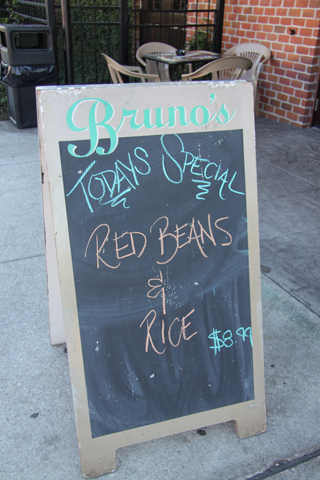 Bruno's
TODAYS SPECIAL
RED BEANS
&
RICE
$8.99